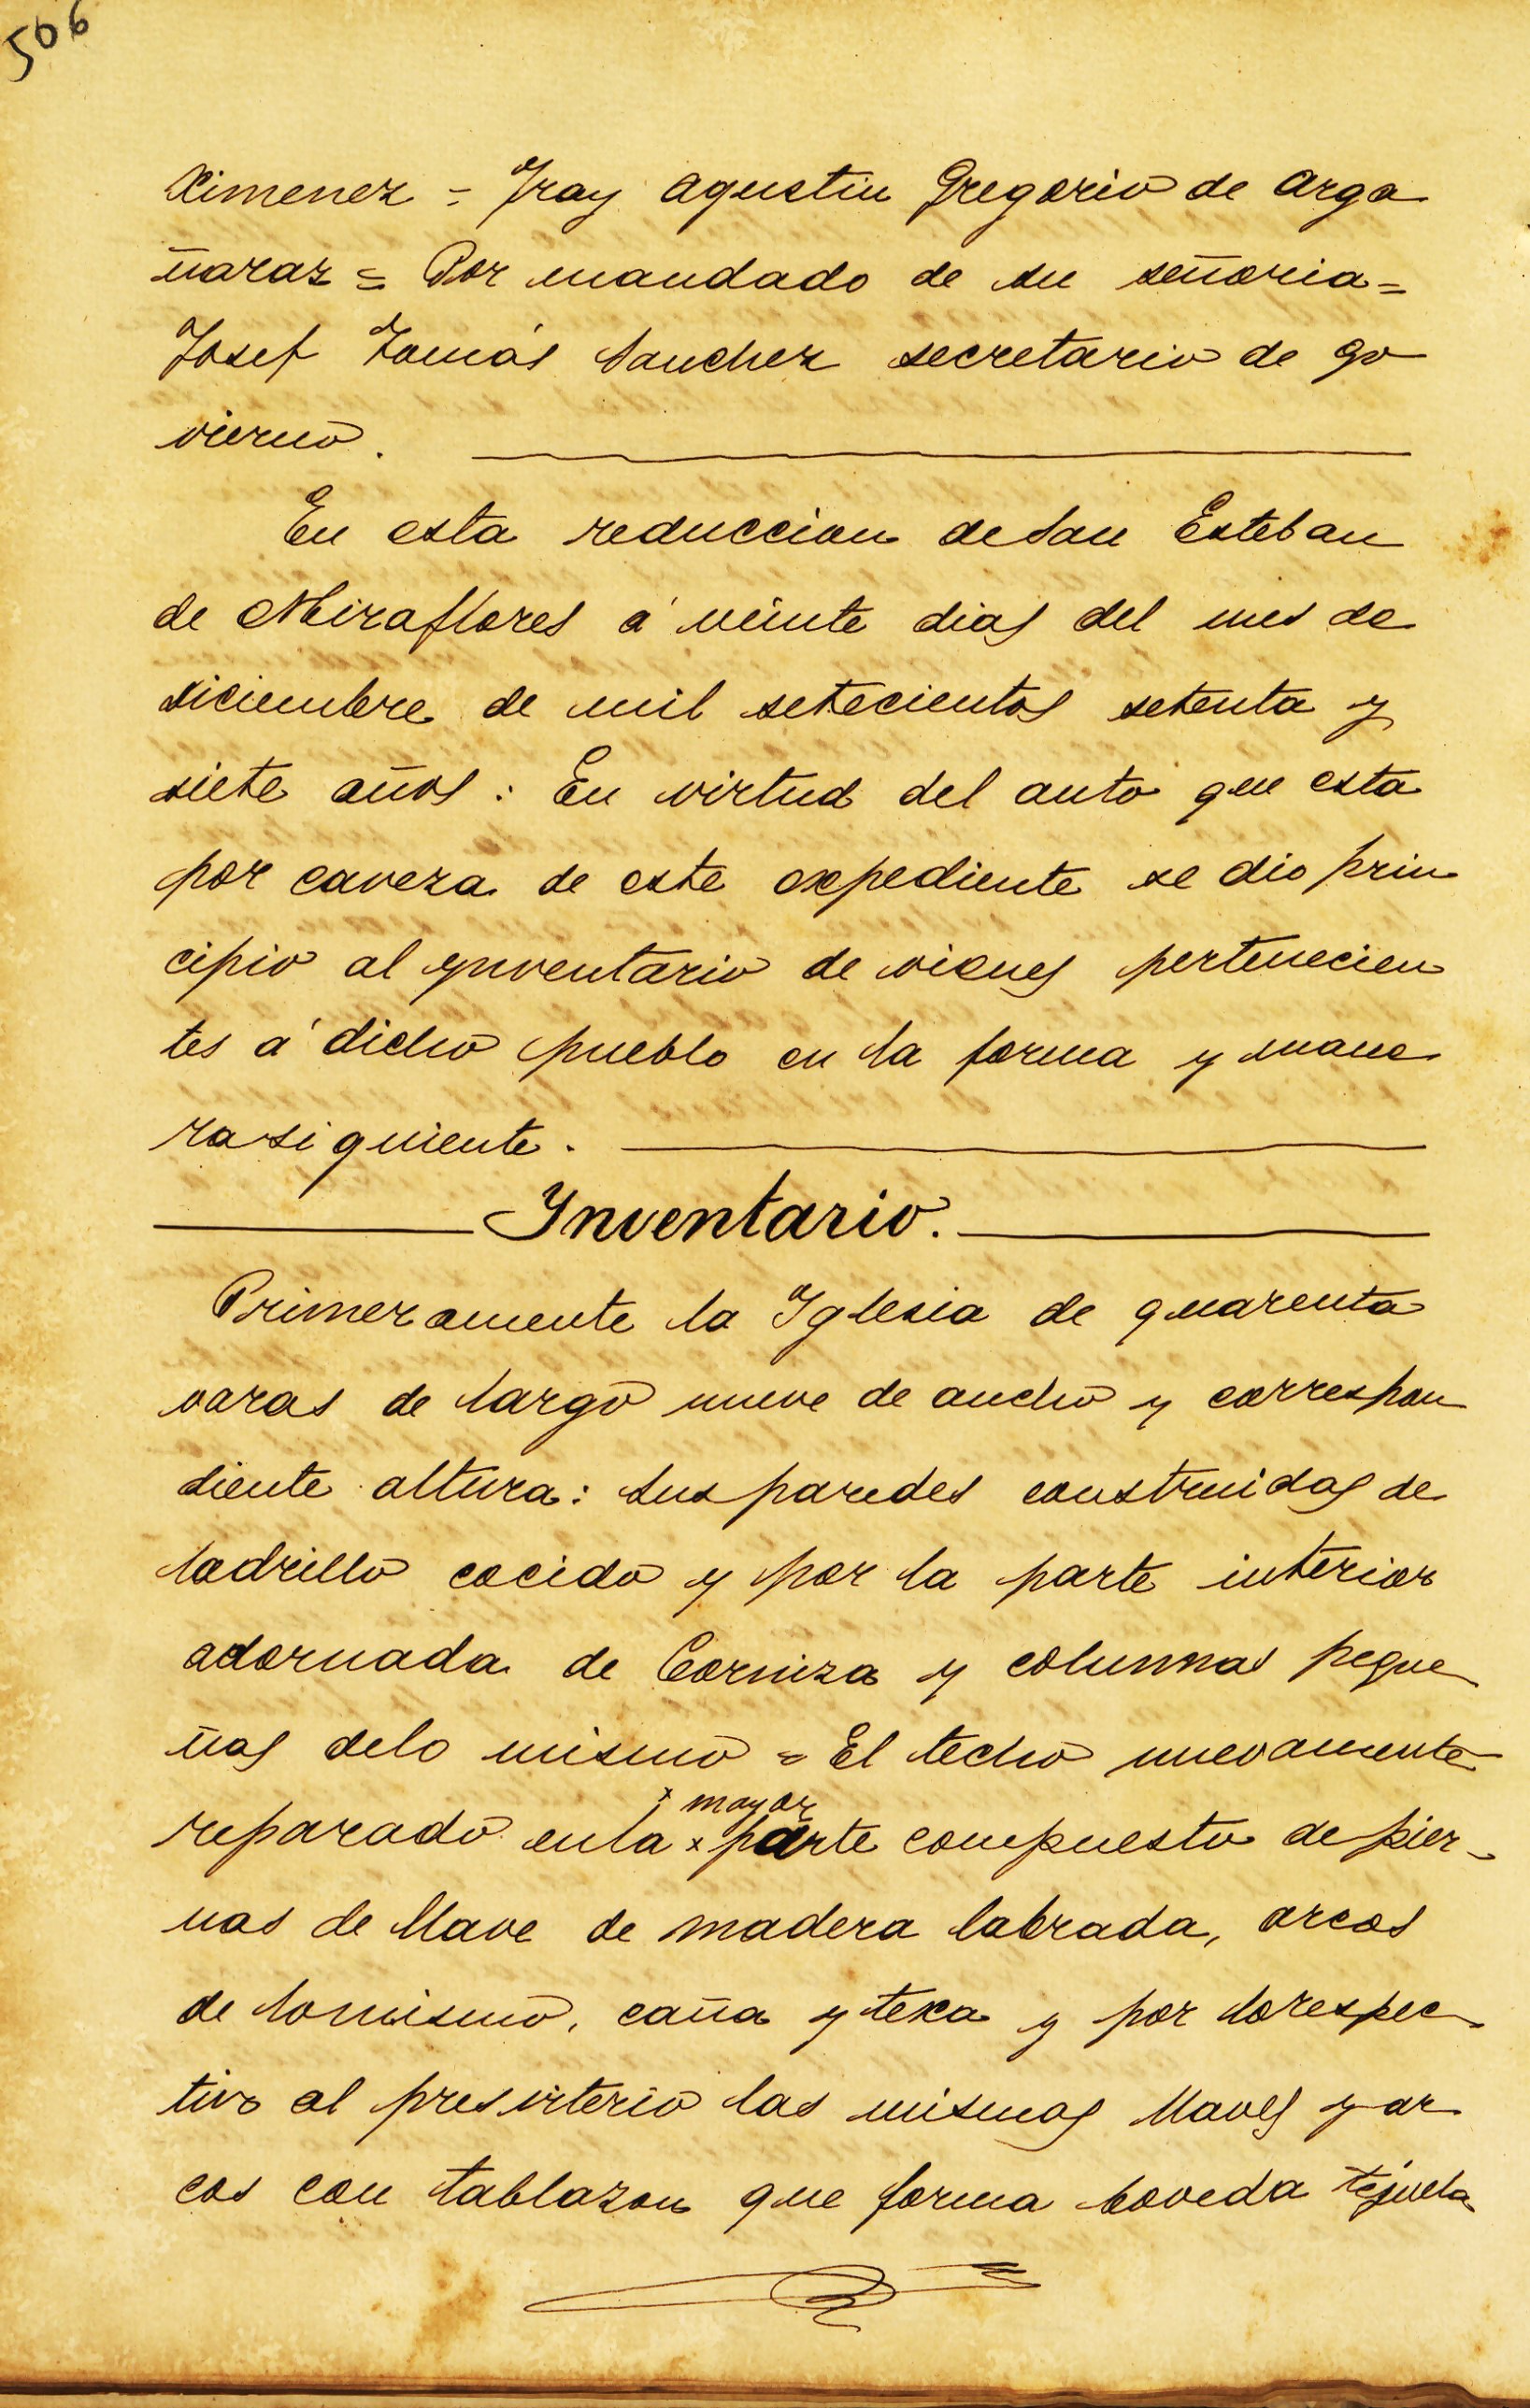 506
Ximenez = Fray Agustin Gregorio de Arga
ñaraz = Por mandado de su señoria =
Josef Tomás Sanchez secretario de go
vierno.
En esta reduccion de San Esteban
de Miraflores á veinte dias del mes de
diciembre de mil setecientos setenta y
siete años: En virtud del auto que esta
por caveza de este expediente se dio prin
cipio al ynventario de vienes pertenecien
tes á dicho pueblo en la forma y mane
ra siguiente.
Ynventario.
Primeramente la Iglesia de quarenta
varas de largo nueve de ancho y correspon
diente altura: sus paredes construidas de
ladrillo cocido y por la parte interior
adornada de Corniza y columnas peque
ñas delo mismo = El techo nuevamente
mayor
reparado enla x parte compuesto de pier-
nas de llave de madera labrada, arcos
de lo mismo, caña y texa y por lo respec
tivo al presviterio las mismas llaves y ar
cos con tablazon que forma boveda tejuela